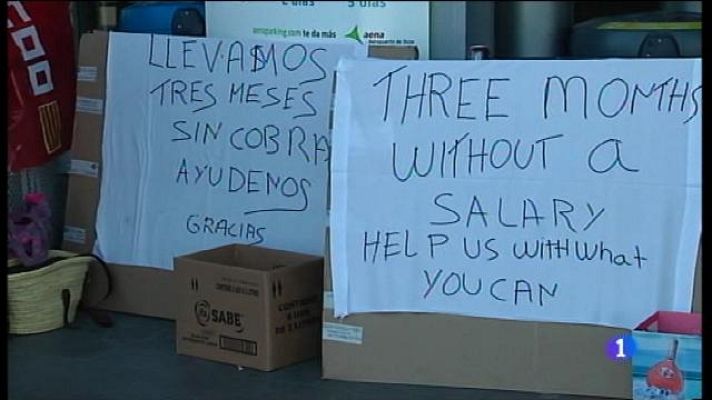 2 días 5 días
aenaparking.com te da más aena
LLEVAMOS
TRES MESES
SIN COBRA
AYUDENOS
GRACIAS
THREE MONTHS
WITHOUT A
SALARY
HELP US WITH WHAT
YOU CAN
SABE
1